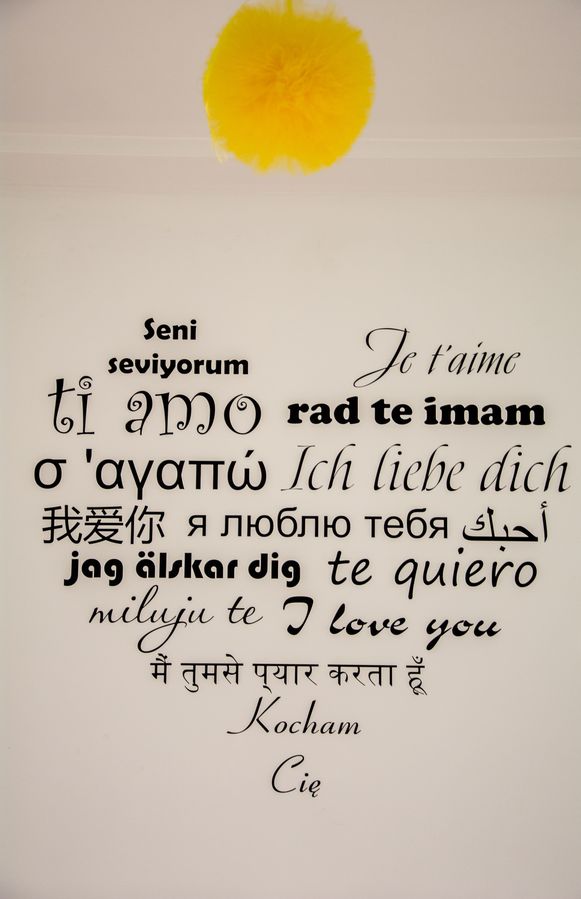 Seni
seviyorum
Je t'aime
ti amo rad te imam
σ 'αγαπώ Ich liebe dich
我爱你 я люблю тебя أحبك
jag älskar dig te quiero
miluju te I love you
मैं तुमसे प्यार करता हूँ
Kocham
Cię